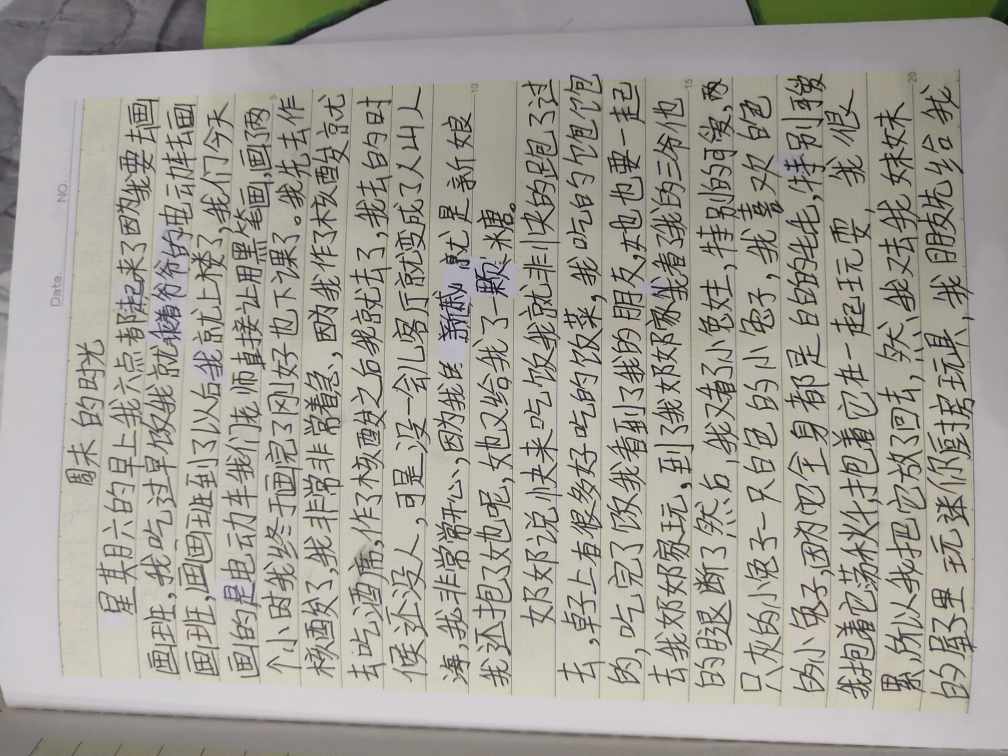 Date. NO.
周末的时光
星其月六的早上我六点者阝起来了因为我要去画
画班,我吃过早饭我就做着爷爷的电动车去画
画班,画画班到了以后我就上楼了,我们今天
画的是电动车我们老师直接让用黑笔画,画了两
个小时我终于画完了刚好也下课了。我先去作
核酸了,我非常非常着急,因为我作了核酸就
去吃酒席,作了核酸之后我就去了,我去的时
候还没人,可是没一会儿客厅就变成了人山人
海,我非常常开心,因为我民 新戚 就是亲斤娘
我还抱了她呢,她又给我了一颗糖。
奶奶说快来吃饭我就非刂夬的跑了过
去,桌子上有很多好吃的饭菜,我吃的勹饱饣饱
的,吃完了饭我看到了我的朋友,她也要一起
去我奶奶家玩,到了我奶奶家我看了我的三爷他
的腿断了然后,我又看了小兔生,特别的可爱,两
只灰的小兔子一只白色的小兔子,我喜欢白色
的小兔子,因为它全身都是白的的毛,特别可爱
我抱着它荡秋千,抱着它在一起玩耍 我很
累,所以我把它放了回去,然,我又去我,妹妹
的屋子里玩迷你厨房玩具,我朋友先给我
5
10
15
20